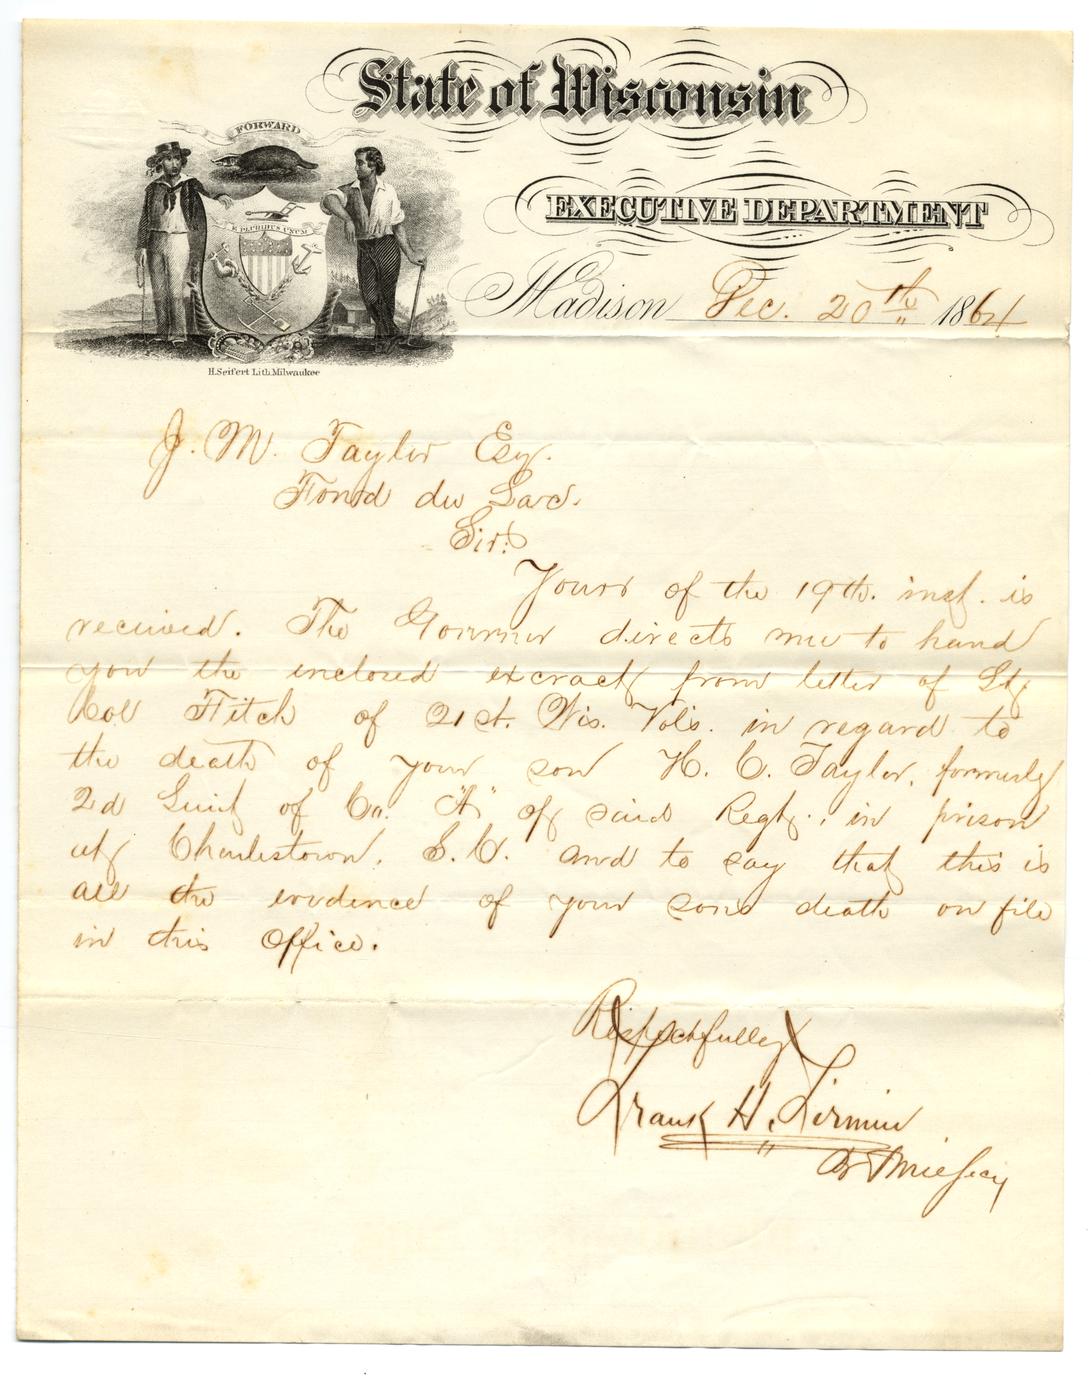 State of Wisconsin
FORWARD
EXECUTIVE DEPARTMENT
E PLURIBUS UNUM
Madison Dec. 20th 1864
H. Seifert Lith. Milwaukee
J. M. Taylor Esq.
Fond du Lac.
Sir:
Yours of the 19th. inst. is
received. The Governor directs me to hand
you the inclosed excract from letter of Lt
Col Fitch of 21st. Wis. Vols. in regard to
the death of your son H. C. Taylor, formerly
2d Lieut of Co. "A" of said Regt., in prison
at Charlestown, S.C. and to say that this is
all the evidence of your sons death on file
in this Office.
Respectfully
Frank H. Firmin